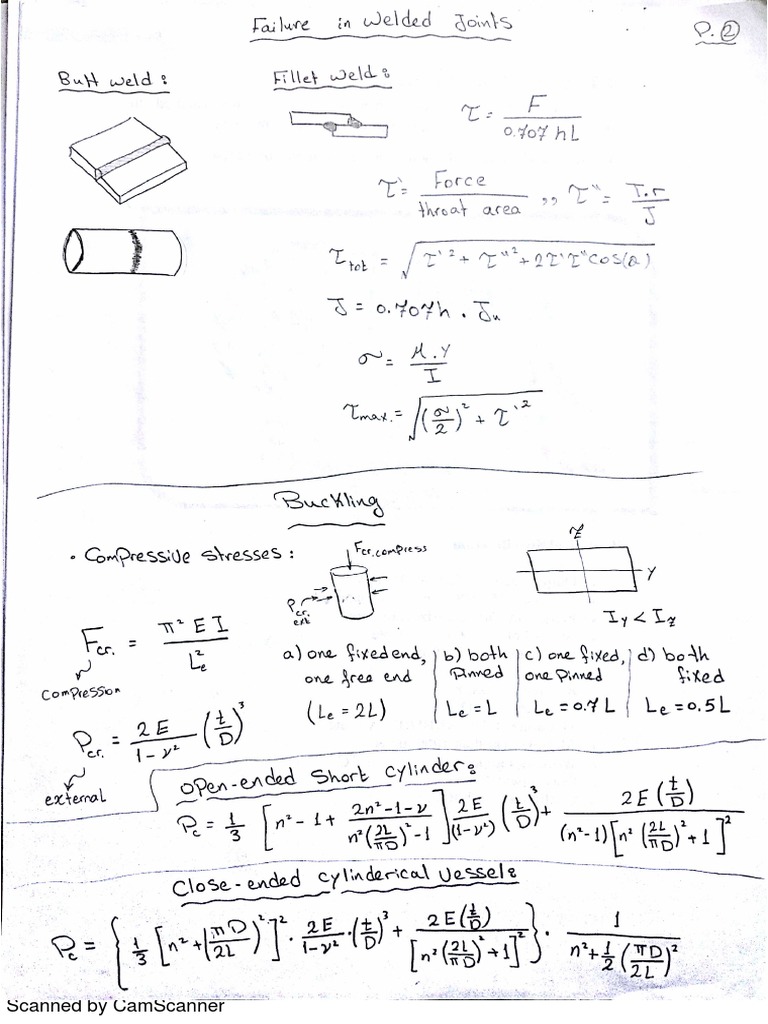 Failure in Welded Joints
P.②
Butt weld :
Fillet weld :
τ = F / 0.707 hL
τ' = Force / throat area ,, τ'' = T.r / J
τtot = √(τ'² + τ''² + 2τ'τ''cos(θ))
J = 0.707h . Ju
σ = M.Y / I
τmax. = √((σ/2)² + τ'²)
Buckling
• Compressive stresses :
Fcr. compress
Pcr. ext
Z
Y
Iy < Iz
Fcr. = π² E I / Le²
compression
a) one fixed end, one free end (Le = 2L)
b) both Pinned Le = L
c) one fixed, one Pinned Le = 0.7L
d) both fixed Le = 0.5L
Pcr. = 2E / 1-ν² (t/D)³
external
Open-ended Short cylinder :
Pc = 1/3 [n² - 1 + (2n² - 1 - ν) / (n²(2L/πD)² - 1)] 2E/(1-ν²) (t/D)³ + 2E(t/D) / (n²-1)[n²(2L/πD)² + 1]²
Close-ended cylinderical Vessel :
Pc = {1/3 [n² + (πD/2L)²]² . 2E/1-ν² . (t/D)³ + 2E(t/D) / [n²(2L/πD)² + 1]²} . 1 / n² + 1/2 (πD/2L)²
Scanned by CamScanner